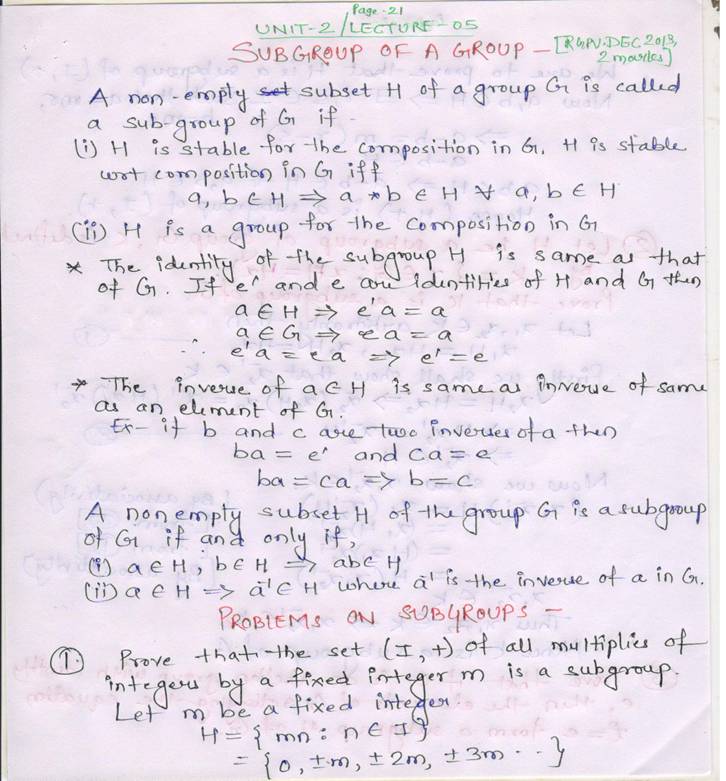 Page-21
UNIT-2/LECTURE-05
SUBGROUP OF A GROUP – [RGPV.DEC 2013, 2 marks]
A non-empty set subset H of a group G is called
a sub-group of G if -
(i) H is stable for the composition in G. H is stable
wrt composition in G iff
a, b ∈ H ⇒ a * b ∈ H ∀ a, b ∈ H
(ii) H is a group for the composition in G
* The identity of the subgroup H is same as that
of G. If e' and e are identities of H and G then
a ∈ H ⇒ e'a = a
a ∈ G ⇒ ea = a
∴ e'a = ea ⇒ e' = e
* The inverse of a ∈ H is same as inverse of same
as an element of G.
Ex- if b and c are two inverses of a then
ba = e' and ca = e
ba = ca ⇒ b = c
A nonempty subset H of the group G is a subgroup
of G if and only if,
(i) a ∈ H, b ∈ H ⇒ ab ∈ H
(ii) a ∈ H ⇒ a⁻¹ ∈ H where a⁻¹ is the inverse of a in G.
PROBLEMS ON SUBGROUPS –
① Prove that the set (I, +) of all multiplies of
integers by a fixed integer m is a subgroup.
Let m be a fixed integer.
H = { mn : n ∈ I }
= { 0, ±m, ±2m, ±3m ... }